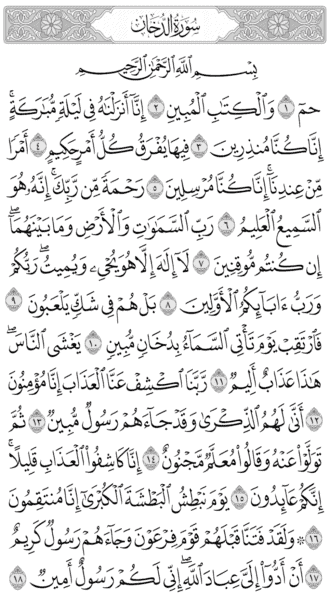 سُورَةُ الدُّخَانِ
بِسْمِ اللَّهِ الرَّحْمَٰنِ الرَّحِيمِ
حمٓ ۝١ وَالْكِتَابِ الْمُبِينِ ۝٢ إِنَّا أَنزَلْنَاهُ فِي لَيْلَةٍ مُّبَارَكَةٍ ۚ
إِنَّا كُنَّا مُنذِرِينَ ۝٣ فِيهَا يُفْرَقُ كُلُّ أَمْرٍ حَكِيمٍ ۝٤ أَمْرًا
مِّنْ عِندِنَا ۚ إِنَّا كُنَّا مُرْسِلِينَ ۝٥ رَحْمَةً مِّن رَّبِّكَ ۚ إِنَّهُ هُوَ
السَّمِيعُ الْعَلِيمُ ۝٦ رَبِّ السَّمَاوَاتِ وَالْأَرْضِ وَمَا بَيْنَهُمَا ۖ
إِن كُنتُم مُّوقِنِينَ ۝٧ لَا إِلَٰهَ إِلَّا هُوَ يُحْيِي وَيُمِيتُ ۖ رَبُّكُمْ
وَرَبُّ ءَابَائِكُمُ الْأَوَّلِينَ ۝٨ بَلْ هُمْ فِي شَكٍّ يَلْعَبُونَ ۝٩
فَارْتَقِبْ يَوْمَ تَأْتِي السَّمَاءُ بِدُخَانٍ مُّبِينٍ ۝١٠ يَغْشَى النَّاسَ ۖ
هَٰذَا عَذَابٌ أَلِيمٌ ۝١١ رَّبَّنَا اكْشِفْ عَنَّا الْعَذَابَ إِنَّا مُؤْمِنُونَ
۝١٢ أَنَّىٰ لَهُمُ الذِّكْرَىٰ وَقَدْ جَاءَهُمْ رَسُولٌ مُّبِينٌ ۝١٣ ثُمَّ
تَوَلَّوْا عَنْهُ وَقَالُوا مُعَلَّمٌ مَّجْنُونٌ ۝١٤ إِنَّا كَاشِفُو الْعَذَابِ قَلِيلًا ۚ
إِنَّكُمْ عَائِدُونَ ۝١٥ يَوْمَ نَبْطِشُ الْبَطْشَةَ الْكُبْرَىٰ إِنَّا مُنتَقِمُونَ
۝١٦ ۞ وَلَقَدْ فَتَنَّا قَبْلَهُمْ قَوْمَ فِرْعَوْنَ وَجَاءَهُمْ رَسُولٌ كَرِيمٌ
۝١٧ أَنْ أَدُّوا إِلَيَّ عِبَادَ اللَّهِ ۖ إِنِّي لَكُمْ رَسُولٌ أَمِينٌ ۝١٨